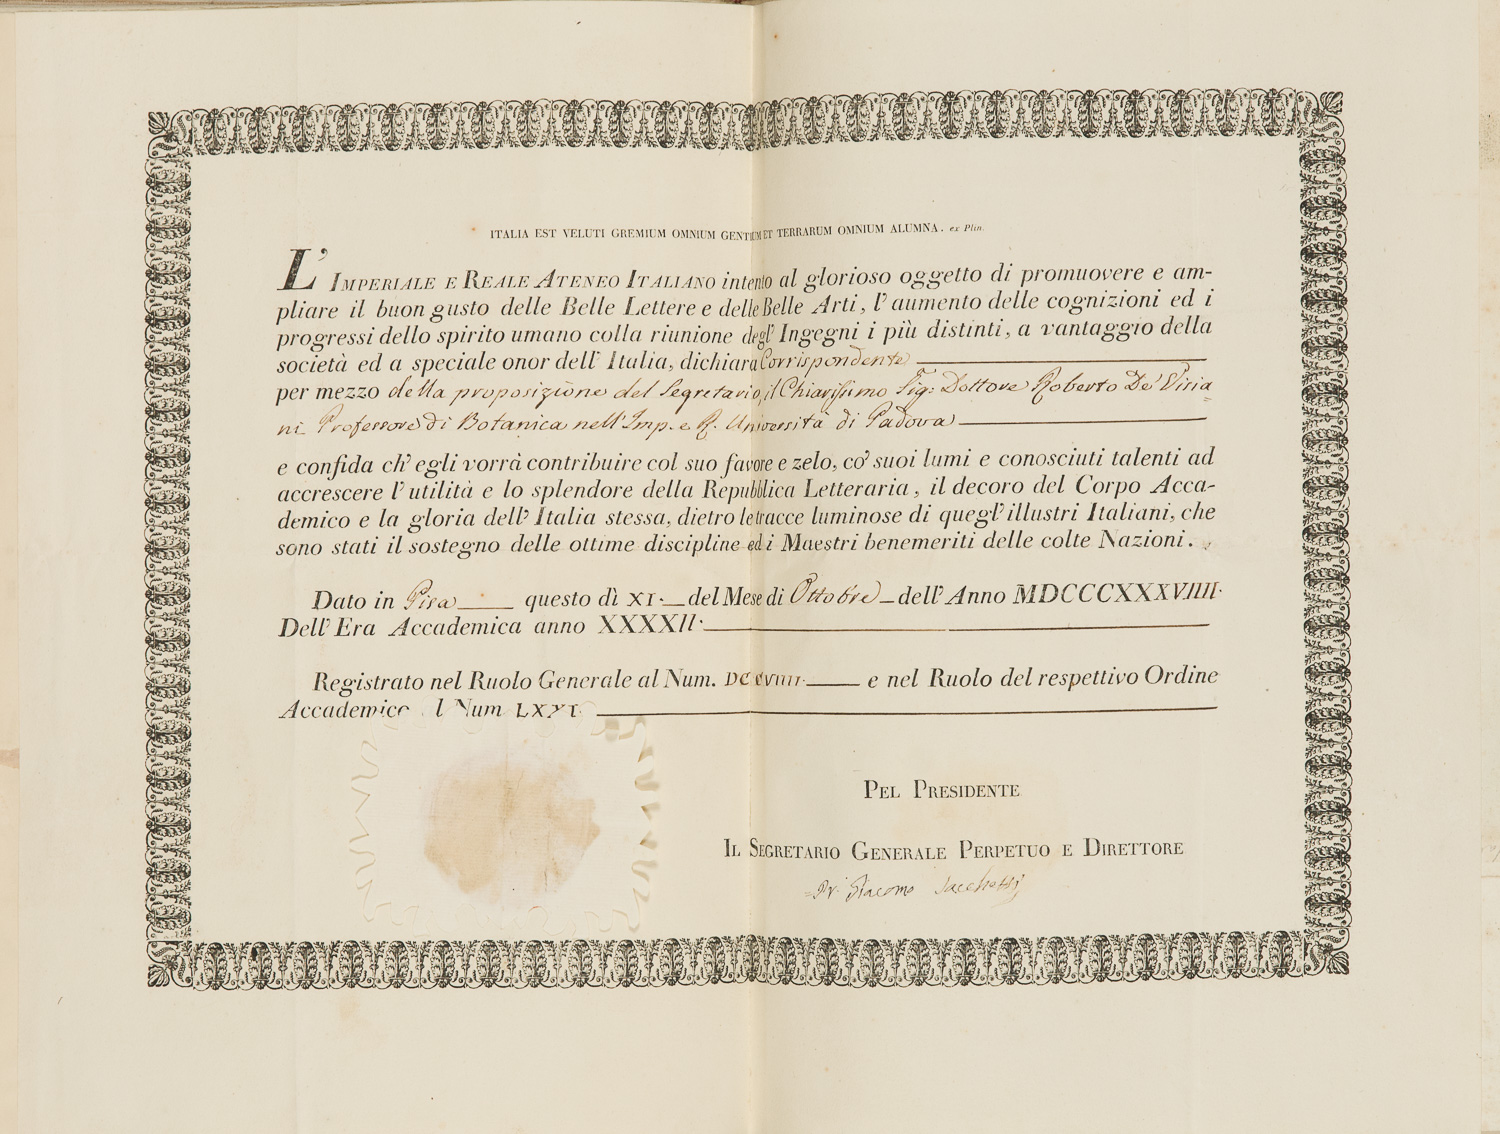 ITALIA EST VELUTI GREMIUM OMNIUM GENTIUM ET TERRARUM OMNIUM ALUMNA. ex Plin.
L' IMPERIALE E REALE ATENEO ITALIANO intento al glorioso oggetto di promuovere e am-
pliare il buon gusto delle Belle Lettere e delle Belle Arti, l'aumento delle cognizioni ed i
progressi dello spirito umano colla riunione degl' Ingegni i più distinti, a vantaggio della
società ed a speciale onor dell' Italia, dichiara Corrispondente
per mezzo della proposizione del Segretario, il Chiarissimo Sig: Dottore Roberto De' Visia
ni Professore di Botanica nell' Imp. e R. Università di Padova
e confida ch' egli vorrà contribuire col suo favore e zelo, co' suoi lumi e conosciuti talenti ad
accrescere l'utilità e lo splendore della Repubblica Letteraria, il decoro del Corpo Acca-
demico e la gloria dell' Italia stessa, dietro le tracce luminose di quegl' illustri Italiani, che
sono stati il sostegno delle ottime discipline ed i Maestri benemeriti delle colte Nazioni.
Dato in Pisa questo dì XI. del Mese di Ottobre dell' Anno MDCCCXXXVIIII.
Dell' Era Accademica anno XXXXII.
Registrato nel Ruolo Generale al Num. e nel Ruolo del respettivo Ordine
Accademico al Num LXXI
PEL PRESIDENTE
IL SEGRETARIO GENERALE PERPETUO E DIRETTORE
Giacomo Sacchetti